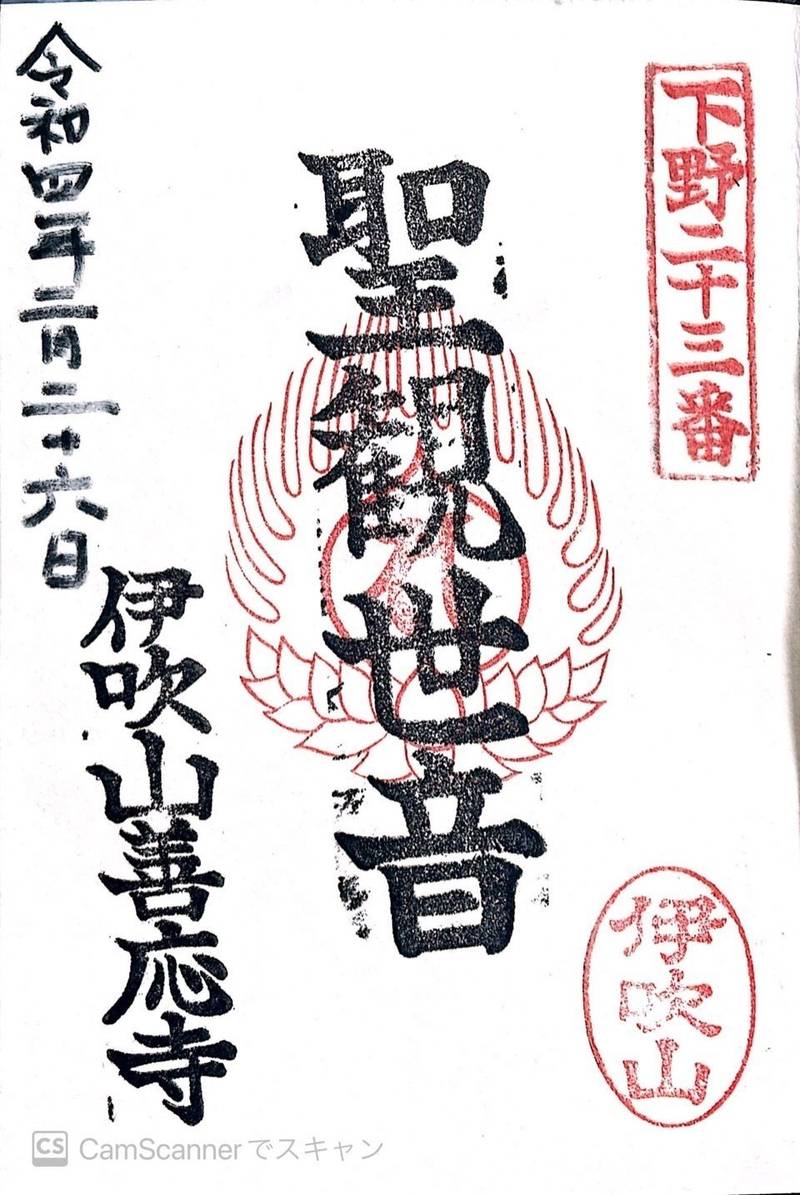 下野二十三番
伊吹山
聖観世音
伊吹山善応寺
令和四年二月二十六日
CS CamScannerでスキャン